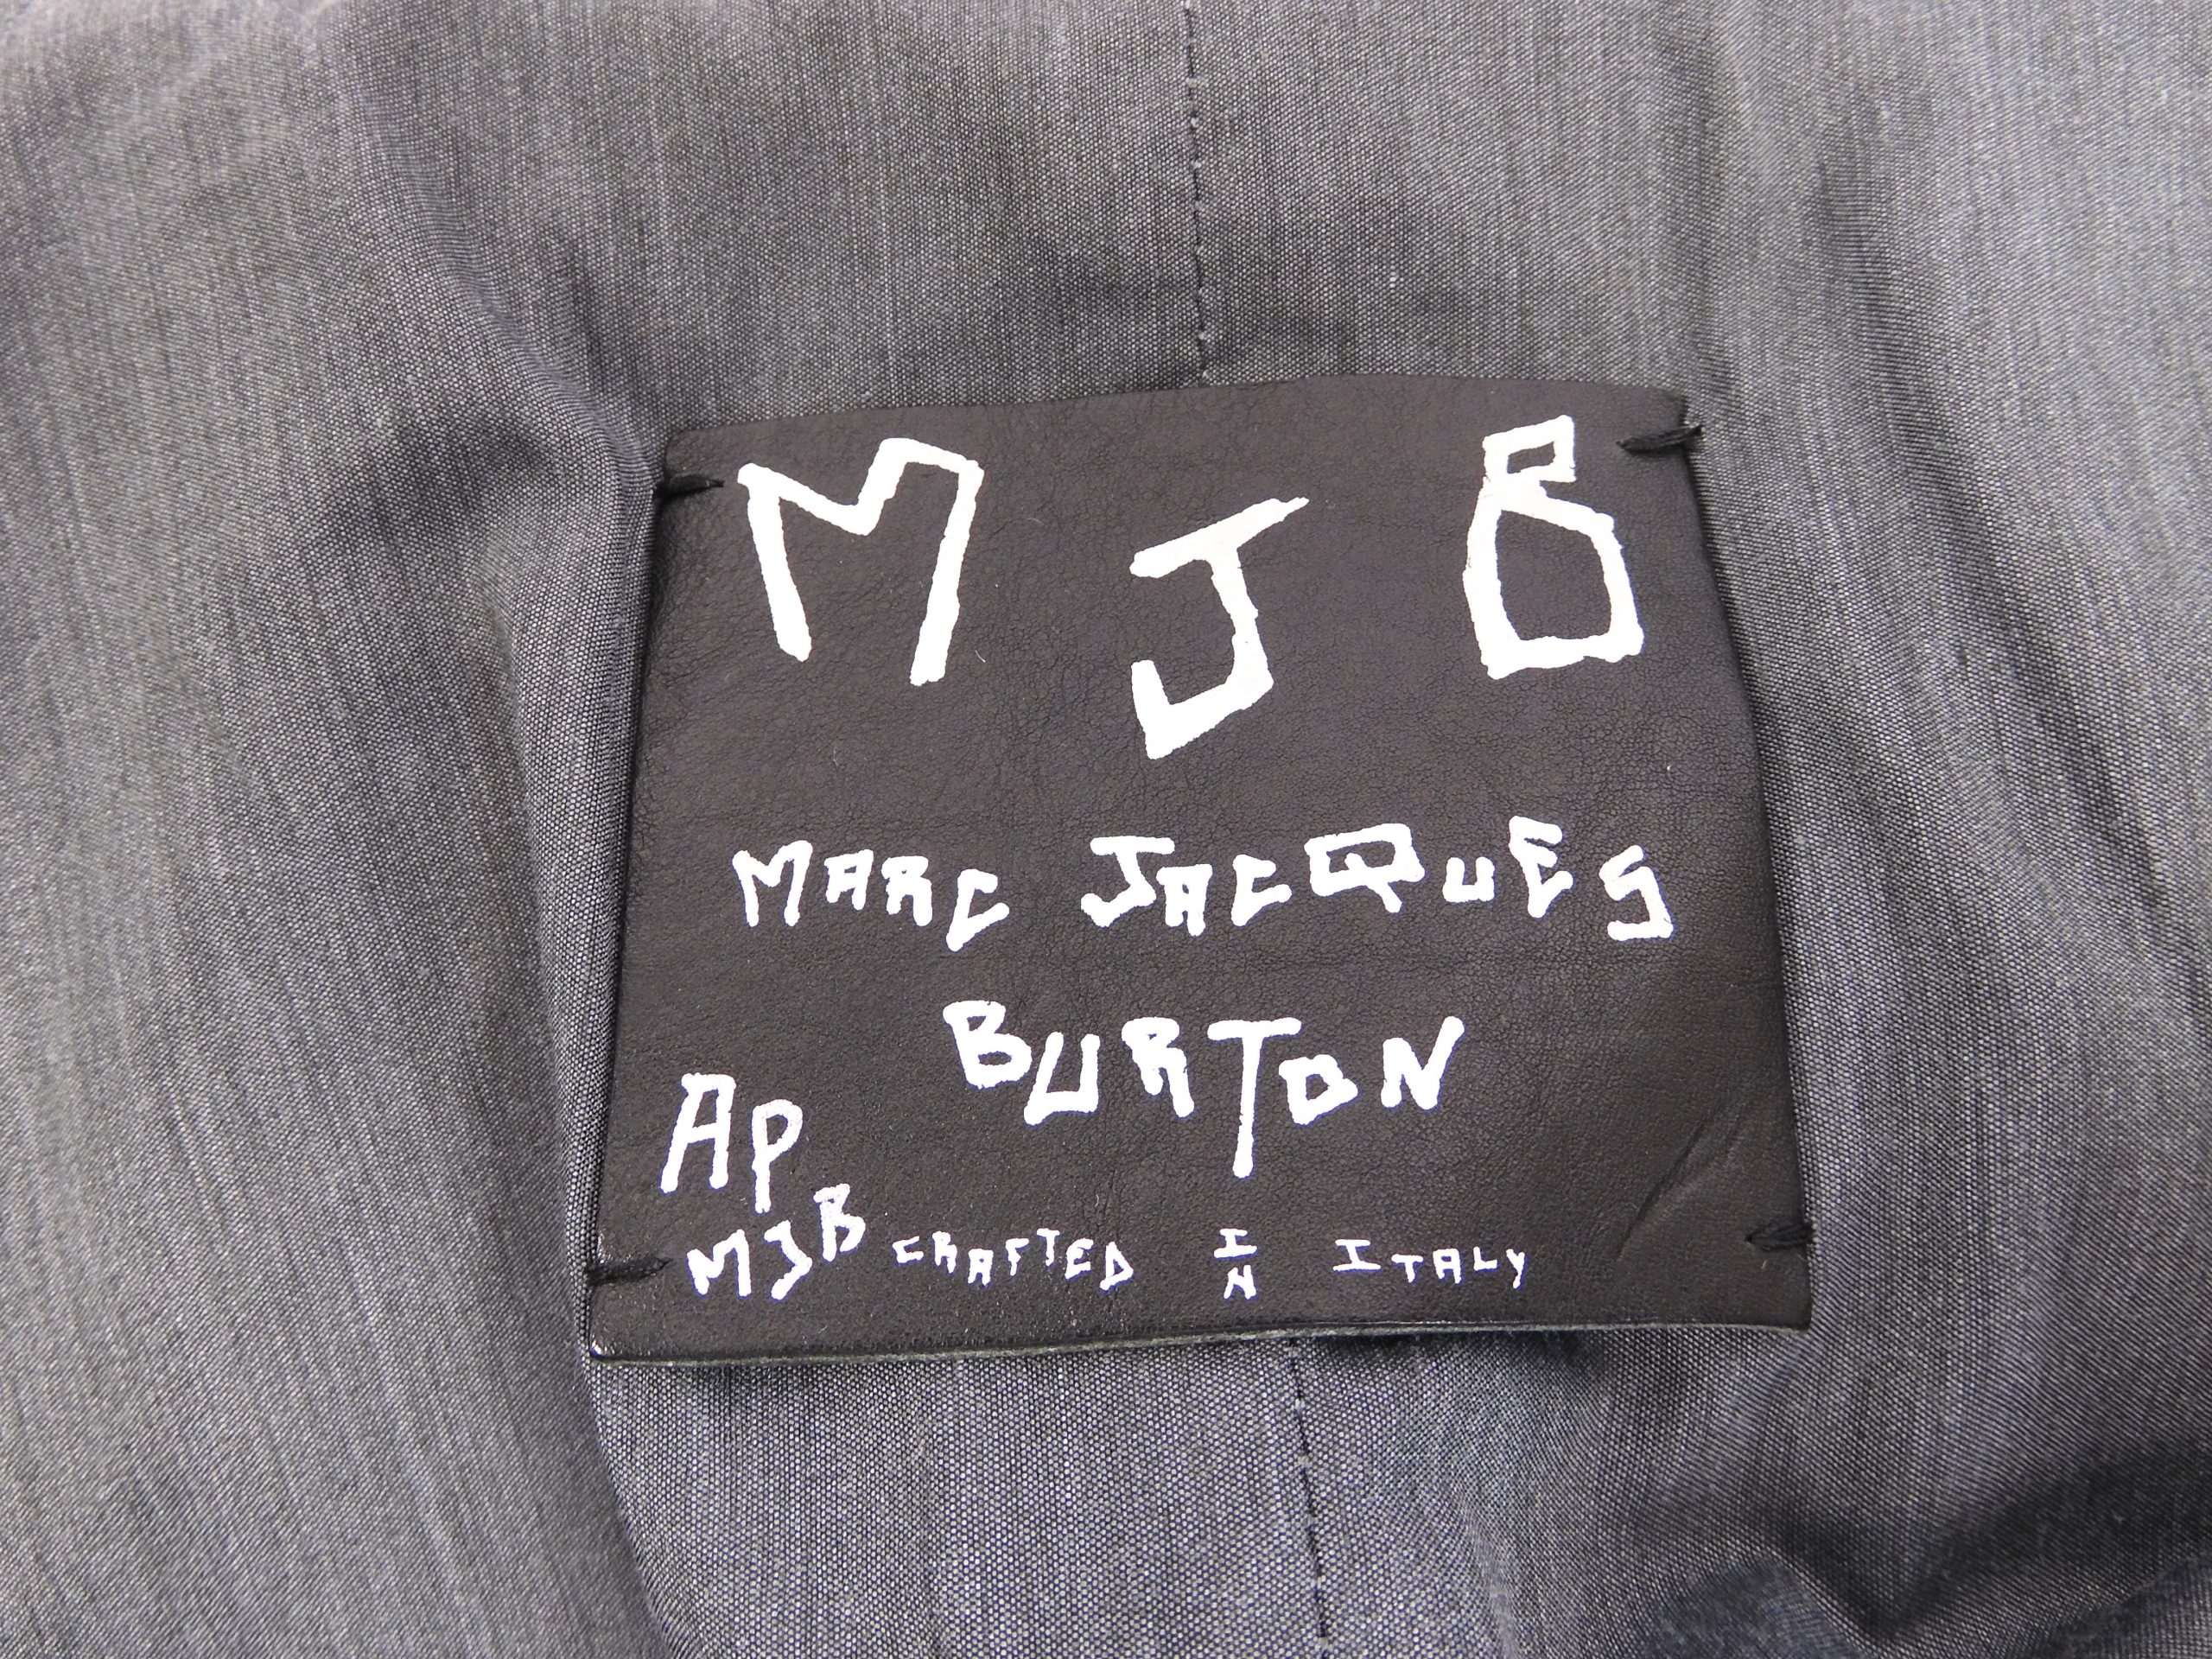 MJB
MARC JACQUES
BURTON
AP
MJB CRAFTED IN ITALY